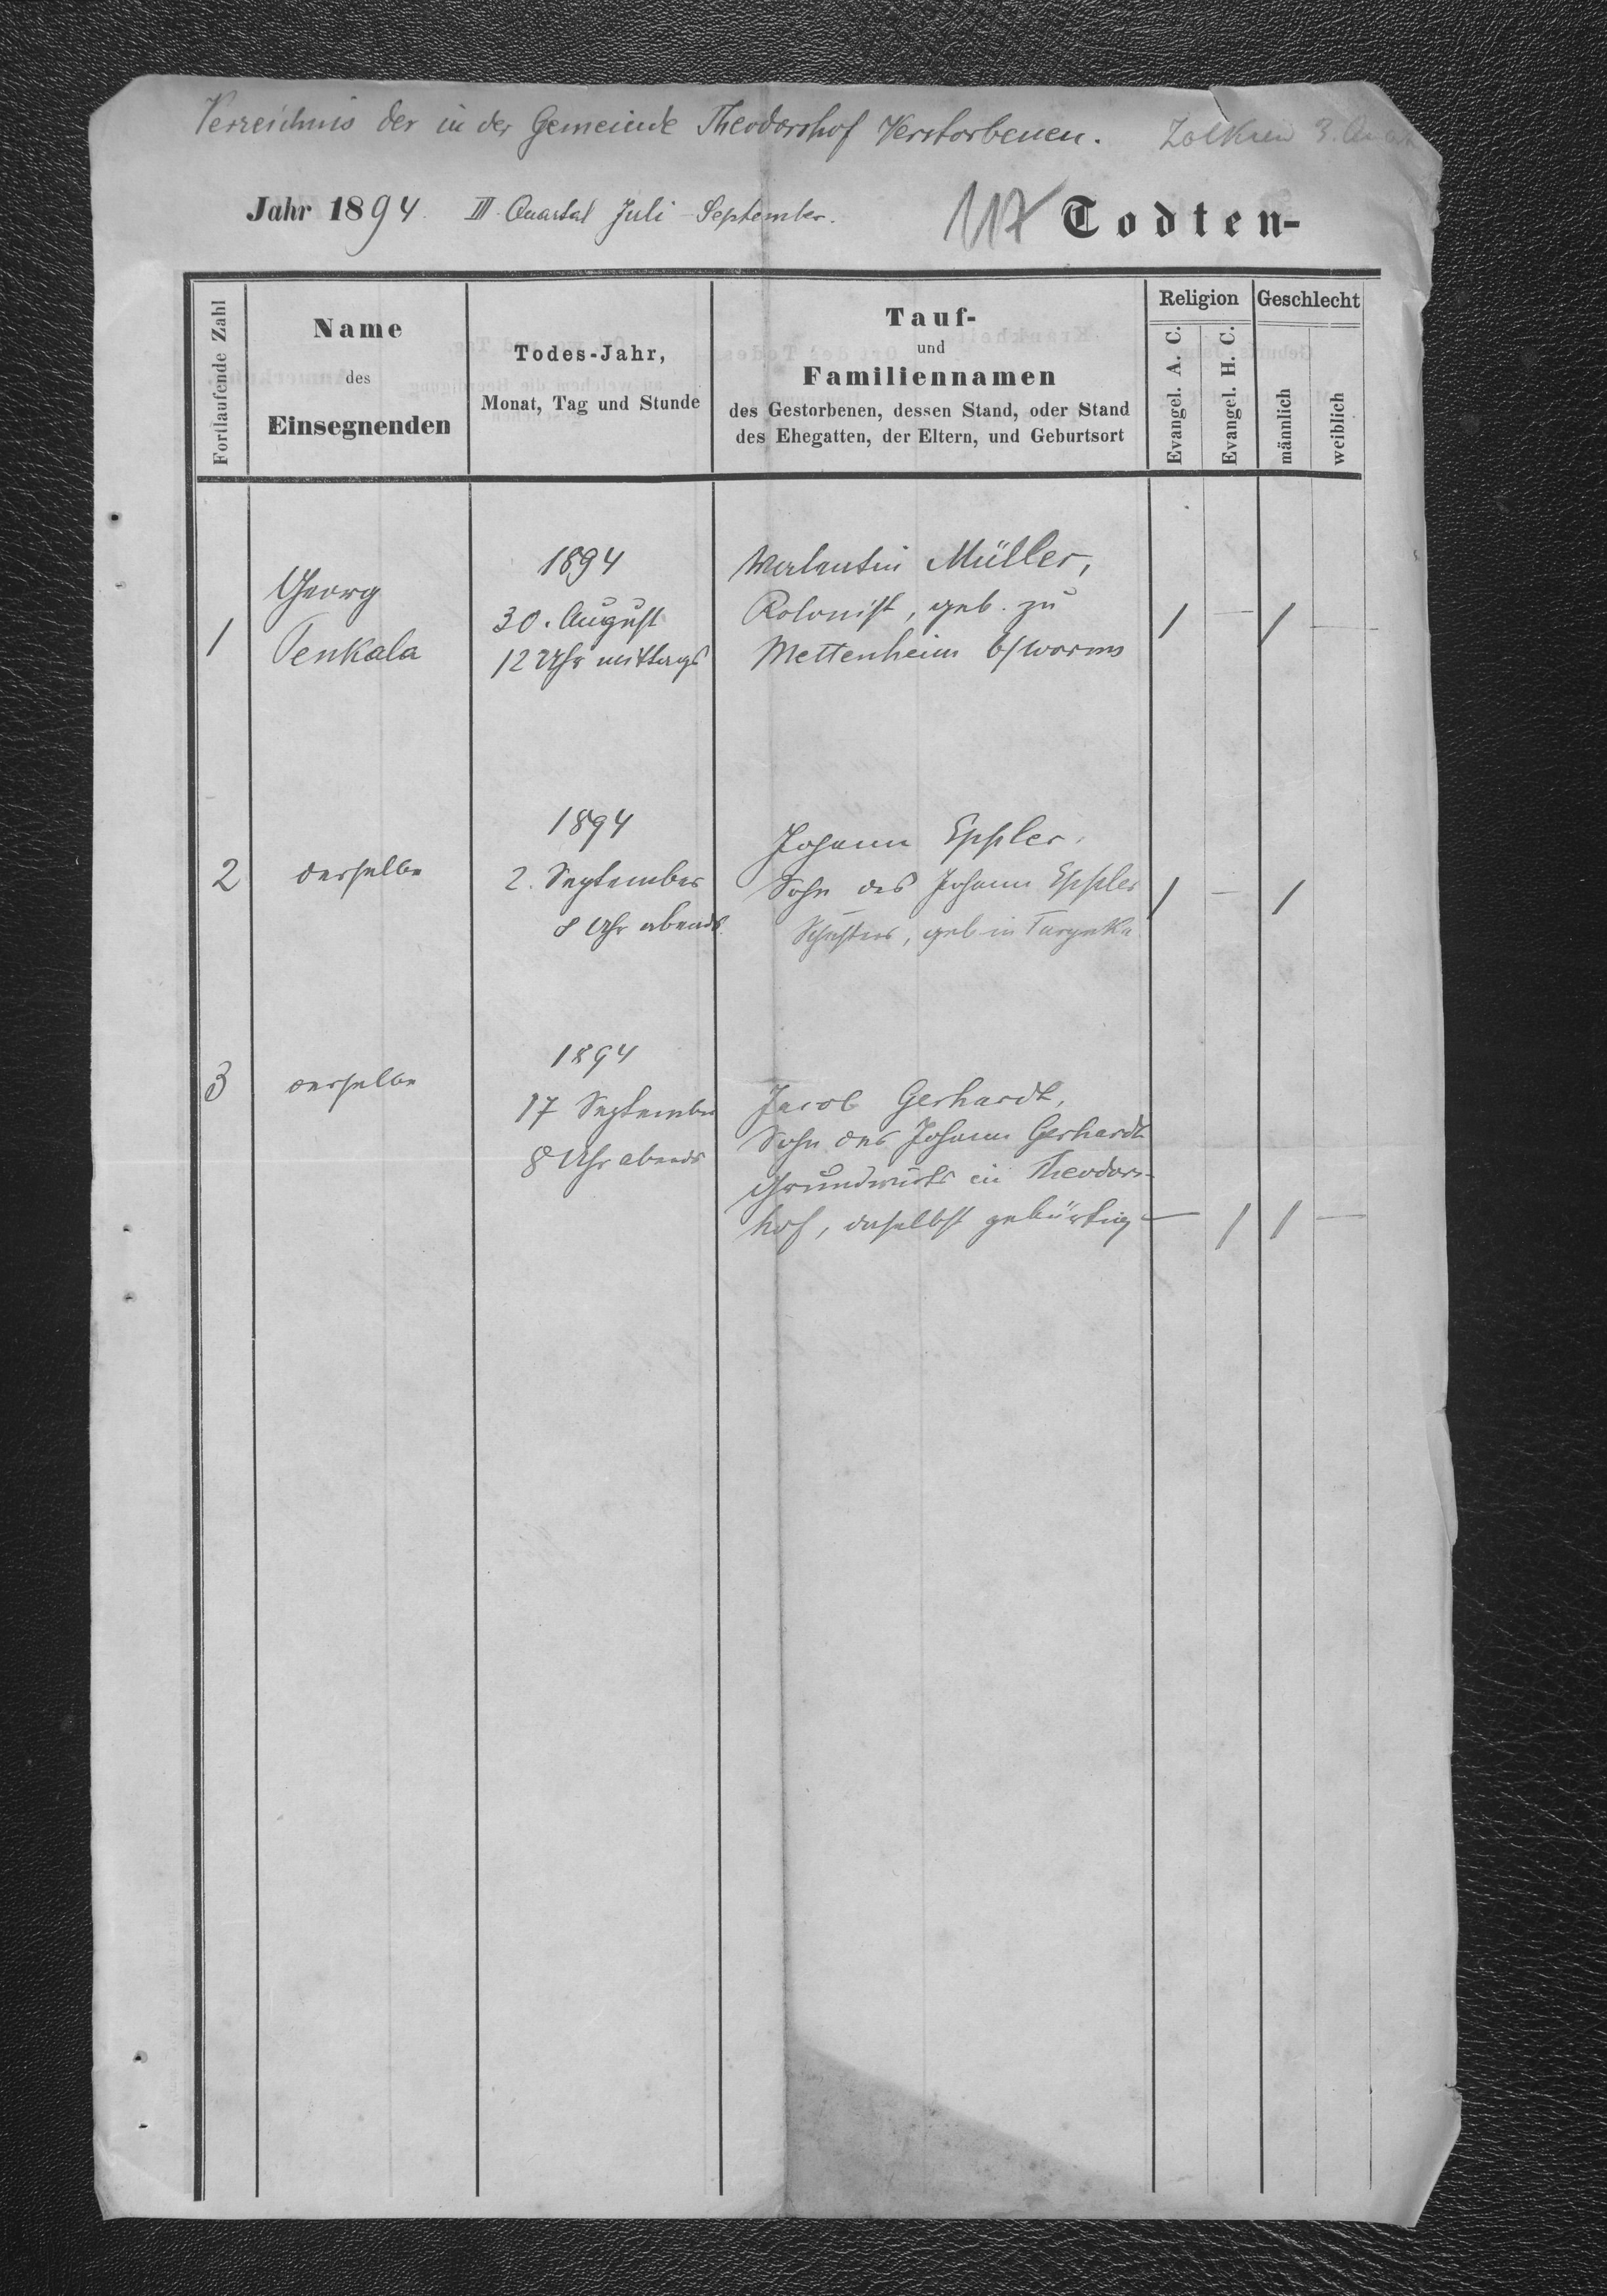 Verzeichnis der in der Gemeinde Theodorshof Verstorbenen.
3. Quart
Jahr 1894. III. Quartal Juli - September.
117 Todten-
Fortlaufende Zahl
Name
des
Einsegnenden
Todes-Jahr,
Monat, Tag und Stunde
Tauf-
und
Familiennamen
des Gestorbenen, dessen Stand, oder Stand
des Ehegatten, der Eltern, und Geburtsort
Religion
Evangel. A. C.
Evangel. H. C.
Geschlecht
männlich
weiblich
1
Georg
Penkala
1894
30. August
12 Uhr mittags
Walentin Müller,
Kolonist, geb. zu
Mettenheim b/Worms
/ — / —
2
derselbe
1894
2. September
8 Uhr abends.
Johann Eppler,
Sohn des Johann Eppler
Schusters, geb in
/ — /
3
derselbe
1894
17 September
8 Uhr abends
Jacob Gerhardt,
Sohn des Johann Gerhardt
Grundwirts in Theodors-
hof, daselbst gebürtig
— / / —